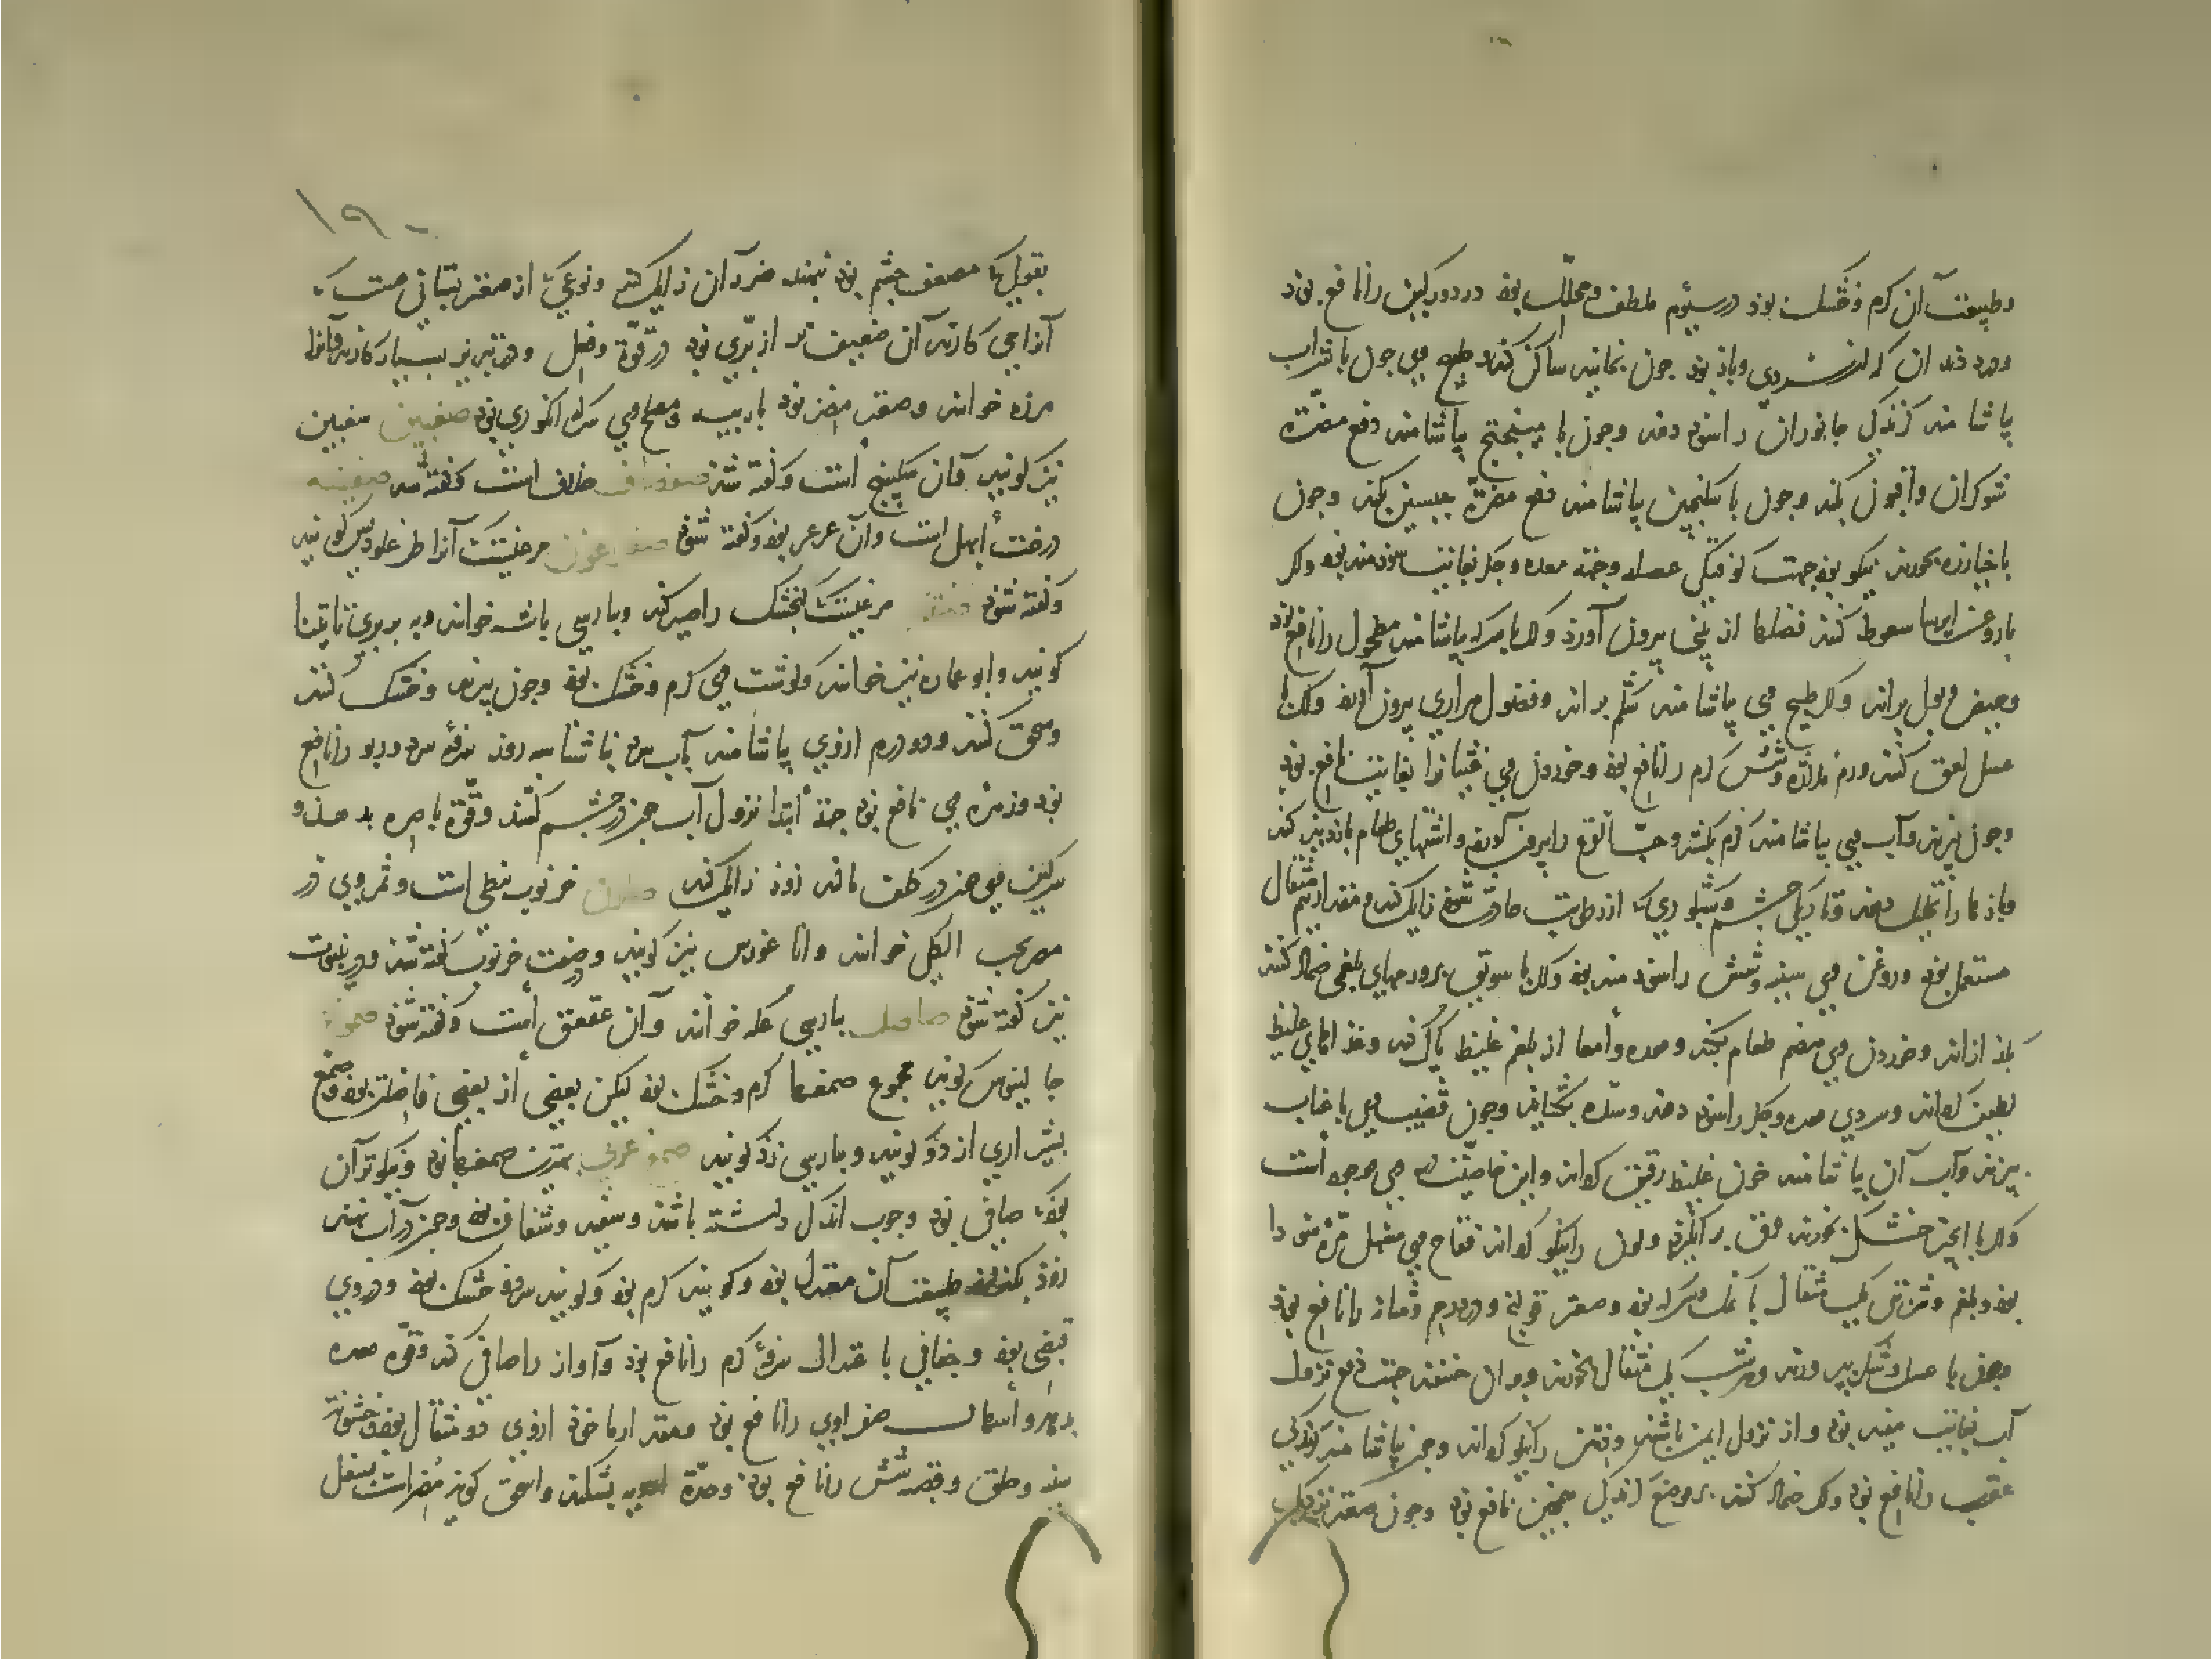 وطبیعت آن گرم و خشک بود در سیوم ملطف و محلل بود درد ورکین را نافع بود
ودرد دندان که از سردی و باد بود چون بخایند ساکن کند و طبیخ وی چون با شراب
بیاشامند گزندگی جانوران را سود دهد و چون با میبختج بیاشامند دفع مضرّة
شوکران و افیون بکند و چون با سکنجبین بیاشامند دفع مضرّة جبسین بکند و چون
بخورند نیکو بود جهت کوفتگی عضله وجهة معده و جگر بغایت سودمند بود و اگر
با روغن ایرسا سعوط کنند فضلها از بینی بیرون آورد و اگر با سرکه بیاشامند مطحول را نافع بود
وحیض و بول براند و اگر طبیخ وی بیاشامند شکم براند و فضول مراری بیرون آورد و اگر با
عسل لعق کنند ورم و شش گرم را نافع بود و خوردن وی بغایت نافع بود
و چون بپزند و آب وی بیاشامند کرم بکشد و حبّ القرع را بیرون آورد و اشتهای طعام بازدید کند
وبادها را تحلیل دهد و تاریکی چشم و شبکوری که از رطوبت حادث شود زایل کند و مقدار نیم مثقال
مستعمل بود و روغن وی سینه و شش را سودمند بود و اگر با سویق بر ورمهای بلغمی ضماد کنند
بگدازاند و خوردن وی هضم طعام بکند و معده و امعا از بلغم غلیظ پاک کند و غذاهای غلیظ
لطیف گرداند و سردی معده و جگر را سود دهد و سدّه بگشاید و چون قضیب وی با عناب
بپزند و آب آن بیاشامند خون غلیظ رقیق گرداند و این خاصیّت در وی موجود است
و اگر با انجیر خشک بخورند عرق برانگیزد و لون را نیکو گرداند فقاح وی مسهل مرّة سودا
بود و بلغم و شربتی یک مثقال با نمک و سرکه بود و صعتر قولنج و درد رحم و مثانه را نافع بود
و چون با عسل و شکر بپرورند و هر شب یک مثقال بخورند و بران خسبند جهت دفع نزول
آب بغایت مفید بود و از نزول ایمن باشند و ذهن را نیکو گرداند و چون بیاشامند گزندگی
عقرب را نافع بود و اگر ضماد کنند بر موضع گزندگی همچنین نافع بود و چون صعتر
۱۹۰
بقولیکه مضعف چشم بود نهند ضرر آن زایل کند و نوعی که از صعتر بستانی هست که
آنرا می کارند آن ضعیف تر از بری بود در قوّة و فعل و در تبریز بسیار کارند و آنرا
مرزه خوانند و صعتر مضر بود باربیه و مصلح وی سرکه انگوری بود صغبین سغبین
نیز گویند و آن سکبینج است و گفته شد صفصاف خلاف است و گفته شد صفینه
درخت ابهل است و آن عرعر بود و گفته شود صفراغون مرغیست آنرا طرغلودیس گویند
و گفته شود صقر مرغیست که گنجشک را صید کند و بپارسی باشه خوانند و به بربری تاینا
گویند و ابو عماره نیز خوانند و گوشت وی گرم و خشک بود و چون بپزند و خشک کنند
و سحق کنند و دو درم از وی بیاشامند بآب سرد ناشتا سه روز سرفه سرد و ربو را نافع
بود و زهره وی نافع بود جهة ابتدا نزول آب چون در چشم کشند و قوّة باصره بدهد و
سرگین وی چون در کلف مالند زود زایل کند صلوان خرنوب نبطی است و ثمر وی در
مصر حب الکلی خوانند و انا غورس نیز گویند و صفت خرنوب گفته شد و در ینبوت
نیز گفته شود صاصلی بپارسی عکه خوانند و آن عقعق است و گفته شود صموغ
جالینوس گوید مجموع صمغها گرم و خشک بود لیکن بعضی از بعضی فاضلتر بود و صمغ
بشیرازی ازدو گویند و بپارسی زد گویند صمغ عربی بهترین صمغها بود و نیکوتر آن
بود که صافی بود و چوب اندک داشته باشد و سفید و شفاف بود و چون در آب نهند
زود بگدازد طبیعت آن معتدل بود و گویند گرم بود و گویند سرد و خشک بود و در وی
قبضی بود و جفافی با عتدال سرفه گرم را نافع بود و آواز را صافی کند و قوّة معده
بدهد و اسهال صفراوی را نافع بود و مقدار ماخوذ از وی دو مثقال بود و خشونة
سینه و حلق و قصبه شش را نافع بود و حدّة ادویه بشکند و اسحق گوید مضر است بسفل